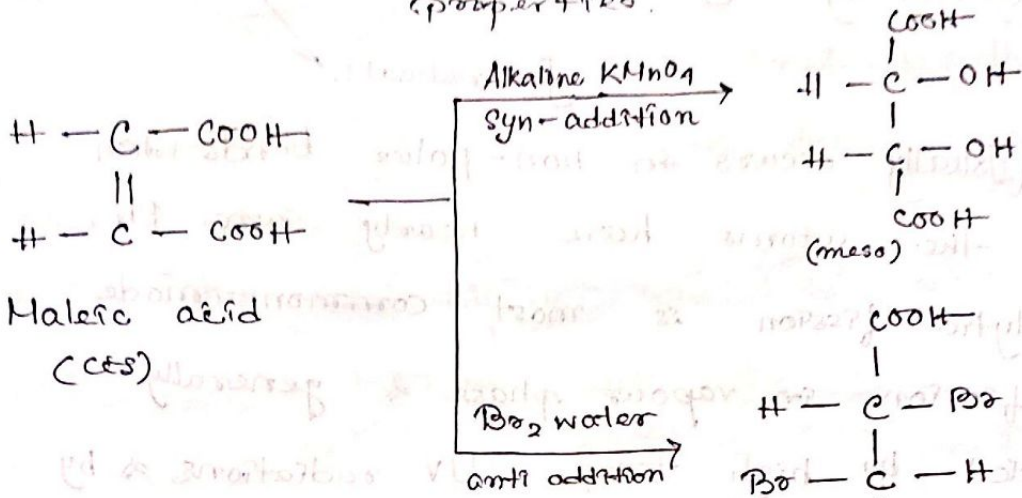 properties.
H — C — COOH
||
H — C — COOH
Maleic acid
(cis)
Alkaline KMnO4
Syn-addition
COOH
|
H — C — OH
|
H — C — OH
|
COOH
(meso)
Br2 water
anti addition
COOH
|
H — C — Br
|
Br — C — H